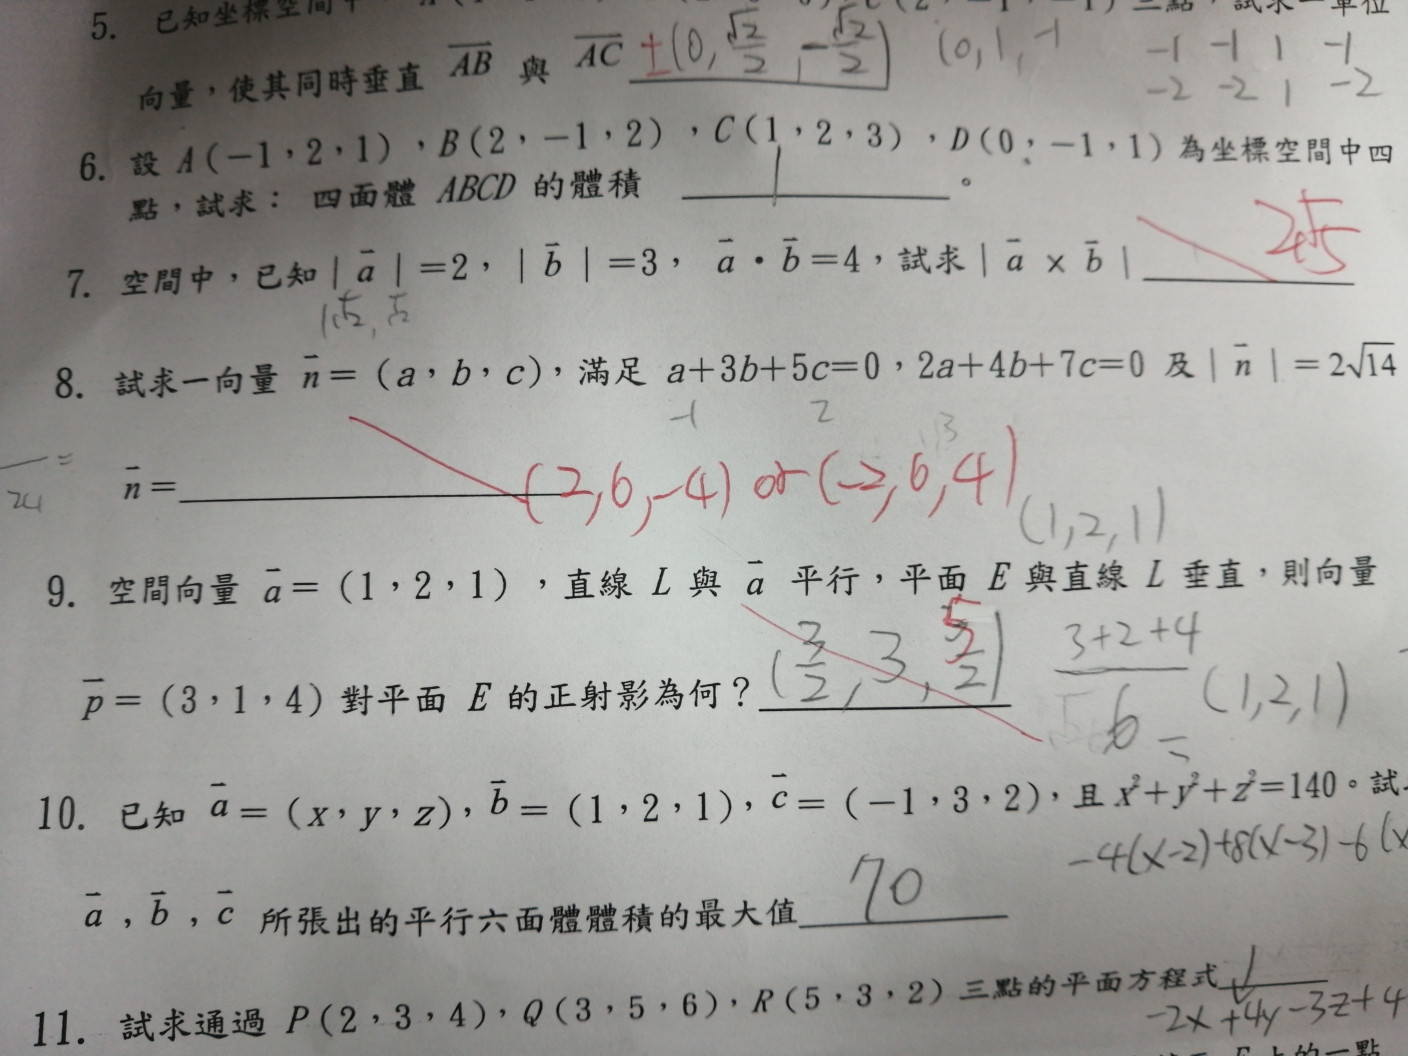 5. 已知坐標空間中 三點，試求一單位
向量，使其同時垂直 AB 與 AC ±(0, √2/2, -√2/2) (0, 1, -1
-1 -1 1 -1
-2 -2 1 -2
6. 設 A(-1，2，1)，B(2，-1，2)，C(1，2，3)，D(0，-1，1)為坐標空間中四
點，試求： 四面體 ABCD 的體積 1 。
2√5
7. 空間中，已知|a|=2，|b|=3，a·b=4，試求|a×b|
8. 試求一向量 n=(a，b，c)，滿足 a+3b+5c=0，2a+4b+7c=0 及|n|=2√14
-1 2 3
n= (2,6,-4) or (-2,6,4)
(1,2,1)
9. 空間向量 a=(1，2，1)，直線 L 與 a 平行，平面 E 與直線 L 垂直，則向量
p=(3，1，4)對平面 E 的正射影為何？ (3/2, 3, 5/2) 3+2+4/6 = (1,2,1)
10. 已知 a=(x，y，z)，b=(1，2，1)，c=(-1，3，2)，且 x²+y²+z²=140。試
-4(x-2)+8(x-3)-6(x
a，b，c 所張出的平行六面體體積的最大值 70
11. 試求通過 P(2，3，4)，Q(3，5，6)，R(5，3，2)三點的平面方程式
-2x+4y-3z+4